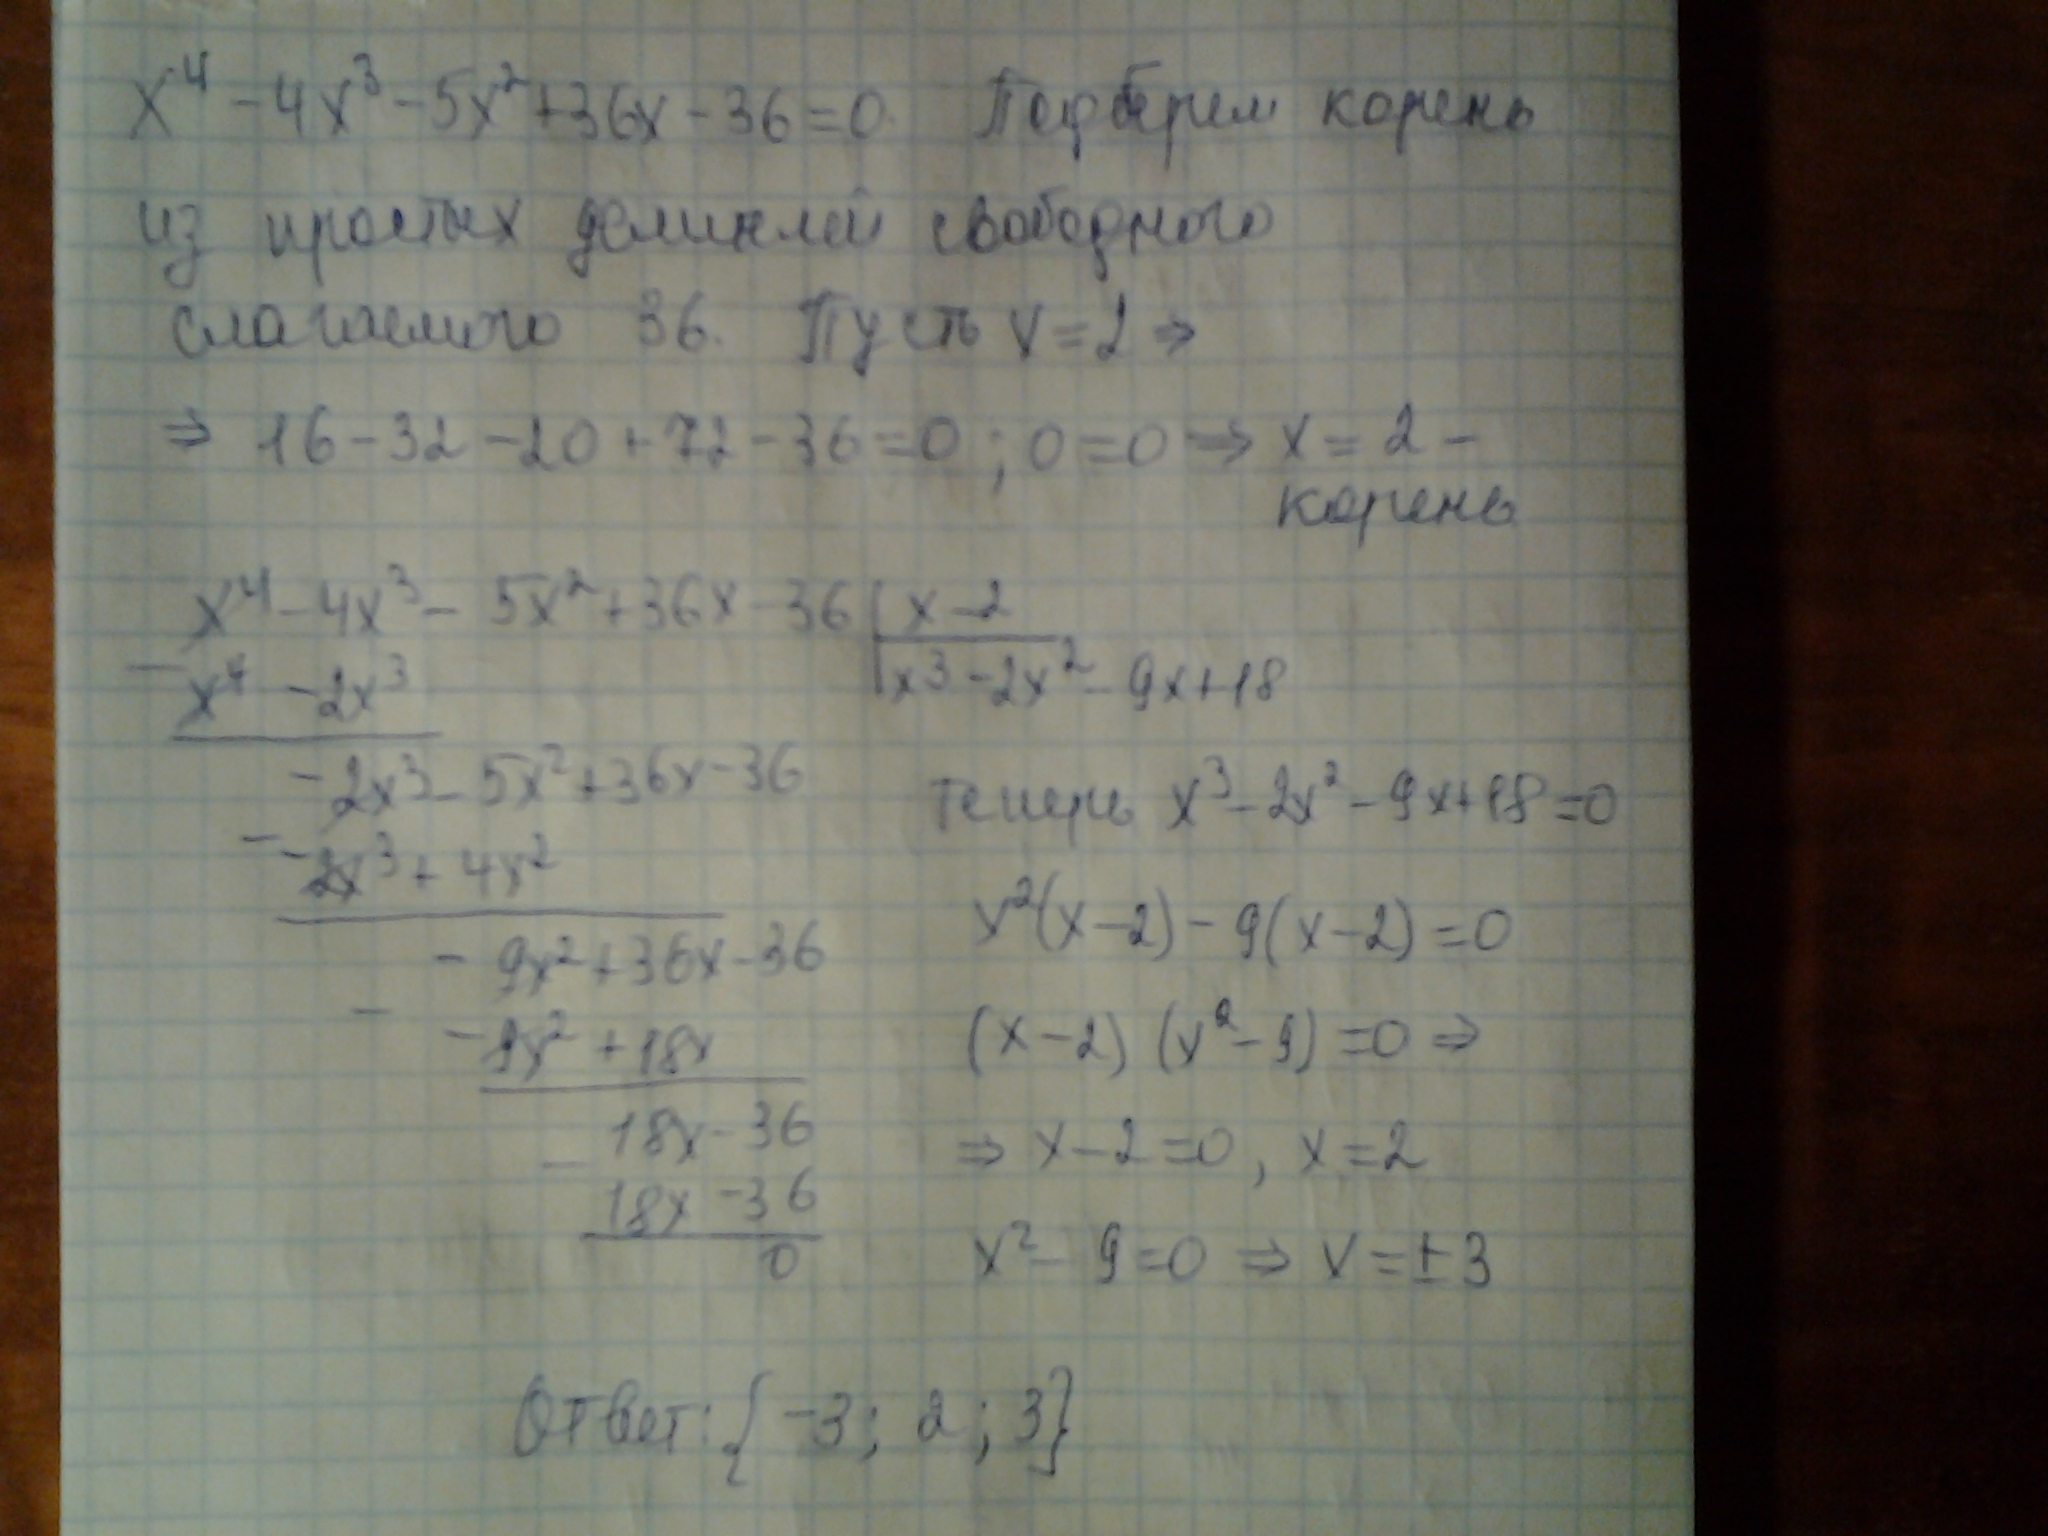 x⁴ - 4x³ - 5x² + 36x - 36 = 0. Подберем корень
из простых делителей свободного
слагаемого 36. Пусть x = 2 ⇒
⇒ 16 - 32 - 20 + 72 - 36 = 0 ; 0 = 0 ⇒ x = 2 -
корень
x⁴ - 4x³ - 5x² + 36x - 36 | x - 2
- x⁴ - 2x³ | x³ - 2x² - 9x + 18
- 2x³ - 5x² + 36x - 36
- - 2x³ + 4x²
- 9x² + 36x - 36
- - 9x² + 18x
18x - 36
- 18x - 36
0
Теперь x³ - 2x² - 9x + 18 = 0
x²(x - 2) - 9(x - 2) = 0
(x - 2) (x² - 9) = 0 ⇒
⇒ x - 2 = 0 , x = 2
x² - 9 = 0 ⇒ x = ± 3
Ответ: { -3 ; 2 ; 3 }